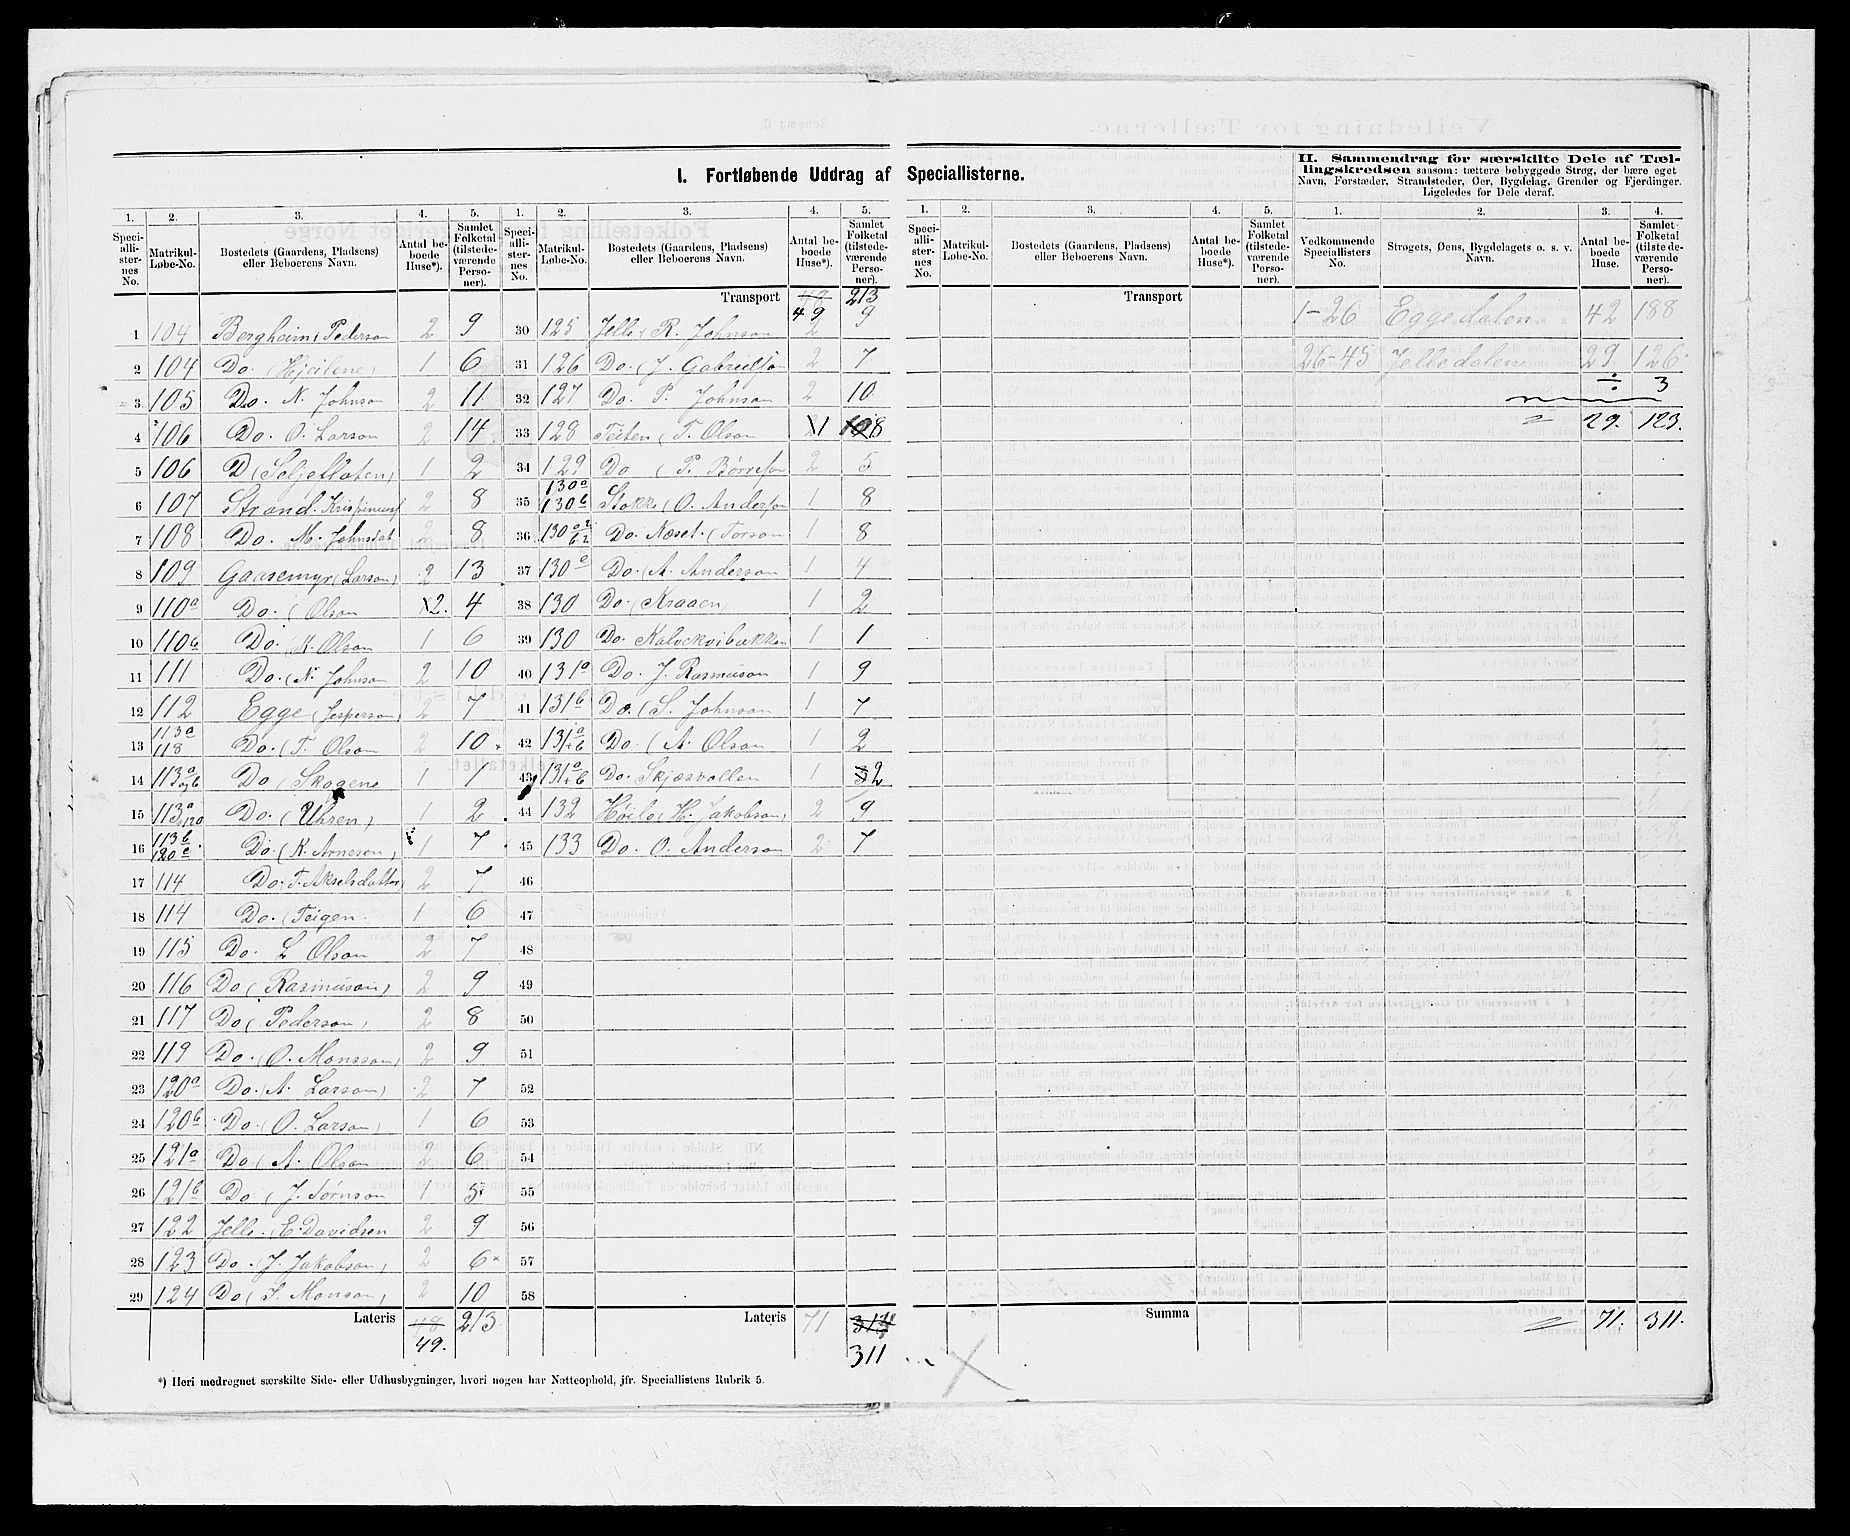 I. Fortløbende Uddrag af Speciallisterne.
II. Sammendrag for særskilte Dele af Tæl-
lingskredsen saasom: tættere bebyggede Strøg, der bære eget
Navn, Forstæder, Strandsteder, Øer, Bygdelag, Grender og Fjerdinger.
Ligeledes for Dele deraf.
1. 2. 3. 4. 5. 1. 2. 3. 4. 5. 1. 2. 3. 4. 5. 1. 2. 3. 4.
Speci-alli-ster-nes No. Matrikul-Løbe-No. Bostedets (Gaardens, Pladsens) eller Beboerens Navn. Antal be-boede Huse*). Samlet Folketal (tilstede-værende Perso-ner).
Speci-alli-ster-nes No. Matrikul-Løbe-No. Bostedets (Gaardens, Pladsens) eller Beboerens Navn. Antal be-boede Huse*). Samlet Folketal (tilstede-værende Perso-ner).
Speci-alli-ster-nes No. Matrikul-Løbe-No. Bostedets (Gaardens, Pladsens) eller Beboerens Navn. Antal be-boede Huse*). Samlet Folketal (tilstede-værende Perso-ner).
Vedkommende Speciallisters No. Strøgets, Øens, Bygdelagets o. s. v. Navn. Antal be-boede Huse. Samlet Folketal (tilstede-værende Perso-ner).
1 104 Bergheim (Pederson 2 9
2 104 Do. (Hjeitene) 1 6
3 105 Do. N. Johnson 2 11
4 106 Do. O. Larson 2 14
5 106 D (Seljeflöten) 1 2
6 107 Strand. 2 8
7 108 Do. M. Johnsdat 2 8
8 109 Gaasemyr (Larson) 2 13
9 110a Do. (Olson 2. 4
10 110b Do. (K. Olson 1 6
11 111 Do. (N. Johnson 2 10
12 112 Egge (Jesperson) 2 7
13 113a 118 Do. (T. Olson 2 10
14 113a og b Do (Skogene 1 1
15 113a 120 Do. (Uhren) 1 2
16 113b 120c Do. (K. Arnesen) 1 7
17 114 Do. T. Akselsdatter 2 7
18 114 Do. (Teigen. 1 6
19 115 Do. L Olson 2 7
20 116 Do (Rasmuson) 2 9
21 117 Do (Pederson) 2 8
22 119 Do. (O. Monsson) 2 9
23 120a Do. (A. Larson) 2 7
24 120b Do. (O. Larson) 1 6
25 121a Do (A. Olson 2 6
26 121b Do. (J. Tørnson 1 5
27 122 Jelle. E. Davidsen 2 9
28 123 Do. (J. Jakobson) 2 6
29 124 Do (S. Monson) 2 10
Lateris 48 213
49.
Transport 48 213
49
30 125 Jelle (R. Johnson 2 9
31 126 Do. (J. Gabrielson 2 7
32 127 Do. P. Johnson 2 10
33 128 Teiten (T. Olson 1 8
34 129 Do (P. Børreson 2 5
35 130a 130b Stokke (O. Anderson 1 8
36 130 Do. Næset. (Torson 1 8
37 130c Do. (A. Anderson 1 4
38 130 Do. (Kraaen) 1 2
39 130 Do. Kalvekvibakken 1 1
40 131a Do. J. Rasmuson 1 9
41 131b Do. (S. Johnson 1 7
42 131a+b Do. (A. Olson 1 2
43 131a+b Do. Skjæsvollen 1 2
44 132 Høilo (H. Jakobson) 2 9
45 133 Do. O. Anderson 2 7
46
47
48
49
50
51
52
53
54
55
56
57
58
Lateris 71
311
Transport
1-26 Eggedalen 42 188
26-45 Jelledalen 29 126
÷ 3
29. 123.
Summa 71. 311.
*) Heri medregnet særskilte Side- eller Udhusbygninger, hvori nogen har Natteophold, jfr. Speciallistens Rubrik 5.